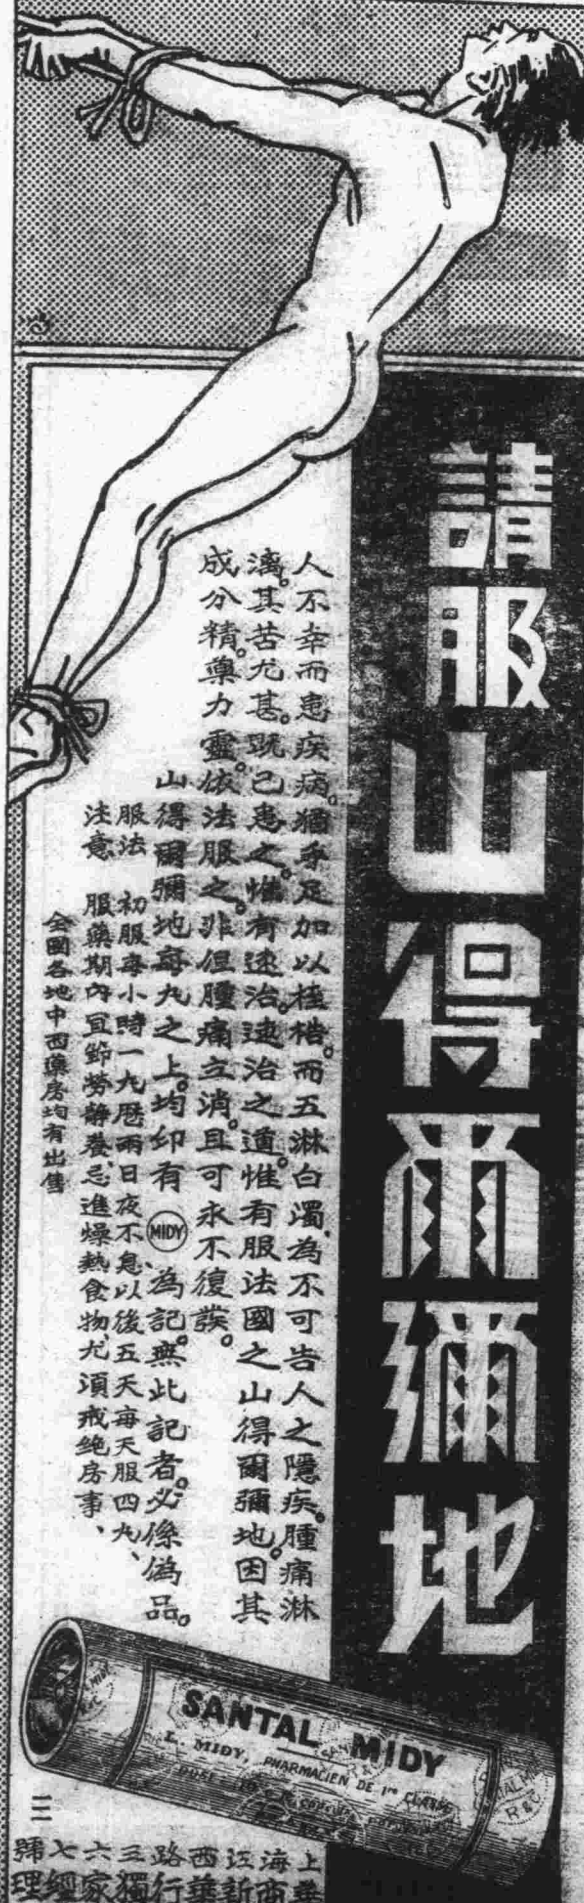 請服山得爾彌地
人不幸而患疾病。猶手足加以桎梏。而五淋白濁、為不可告人之隱疾。腫痛淋
漓。其苦尤甚。既已患之。惟有速治。速治之道。惟有服法國之山得爾彌地。因其
成分精。藥力靈。依法服之。非但腫痛立消。且可永不復發。
山得爾彌地每丸之上。均印有 MIDY 為記。無此記者。必係偽品。
服法 初服每小時一丸歷兩日夜不息、以後五天每天服四丸、
注意 服藥期內宜節勞靜養、忌進燥熱食物、尤須戒絕房事、
全國各地中西藥房均有出售
SANTAL MIDY
L. MIDY, PHARMACIEN DE 1re CLASSE
上海江西路三六七號
華商新華行獨家經理